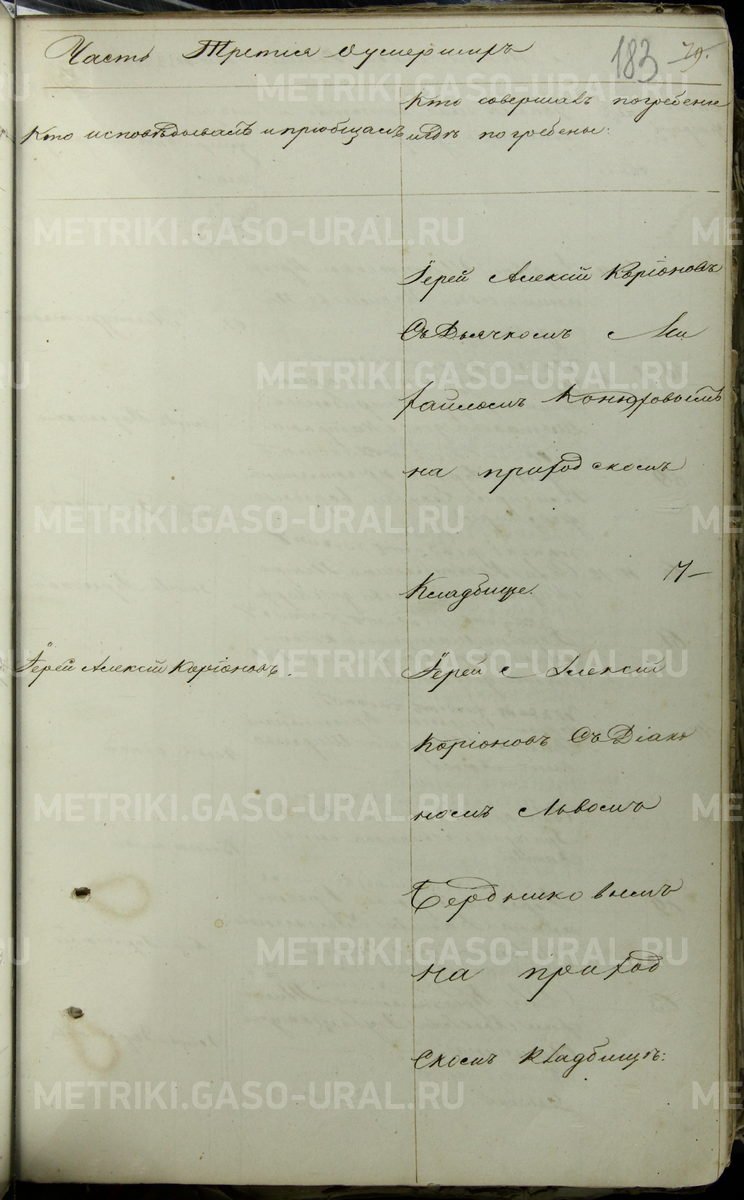 Часть Третия оумерших
183
79.
Кто исповѣдывалъ и пріобщалъ
Кто совершалъ погребеніе
и гдѣ погребены:
Іерей Алексій Коріоновъ
Съ Дьячкомъ Ми
хаиломъ Конюховымъ
на приходскомъ
Кладбище.
Іерей Алексій Коріоновъ.
Іерей Алексій
Коріоновъ Съ Діако
номъ Львомъ
Бердниковымъ
на приход
скомъ Кладбищѣ:
METRIKI.GASO-URAL.RU